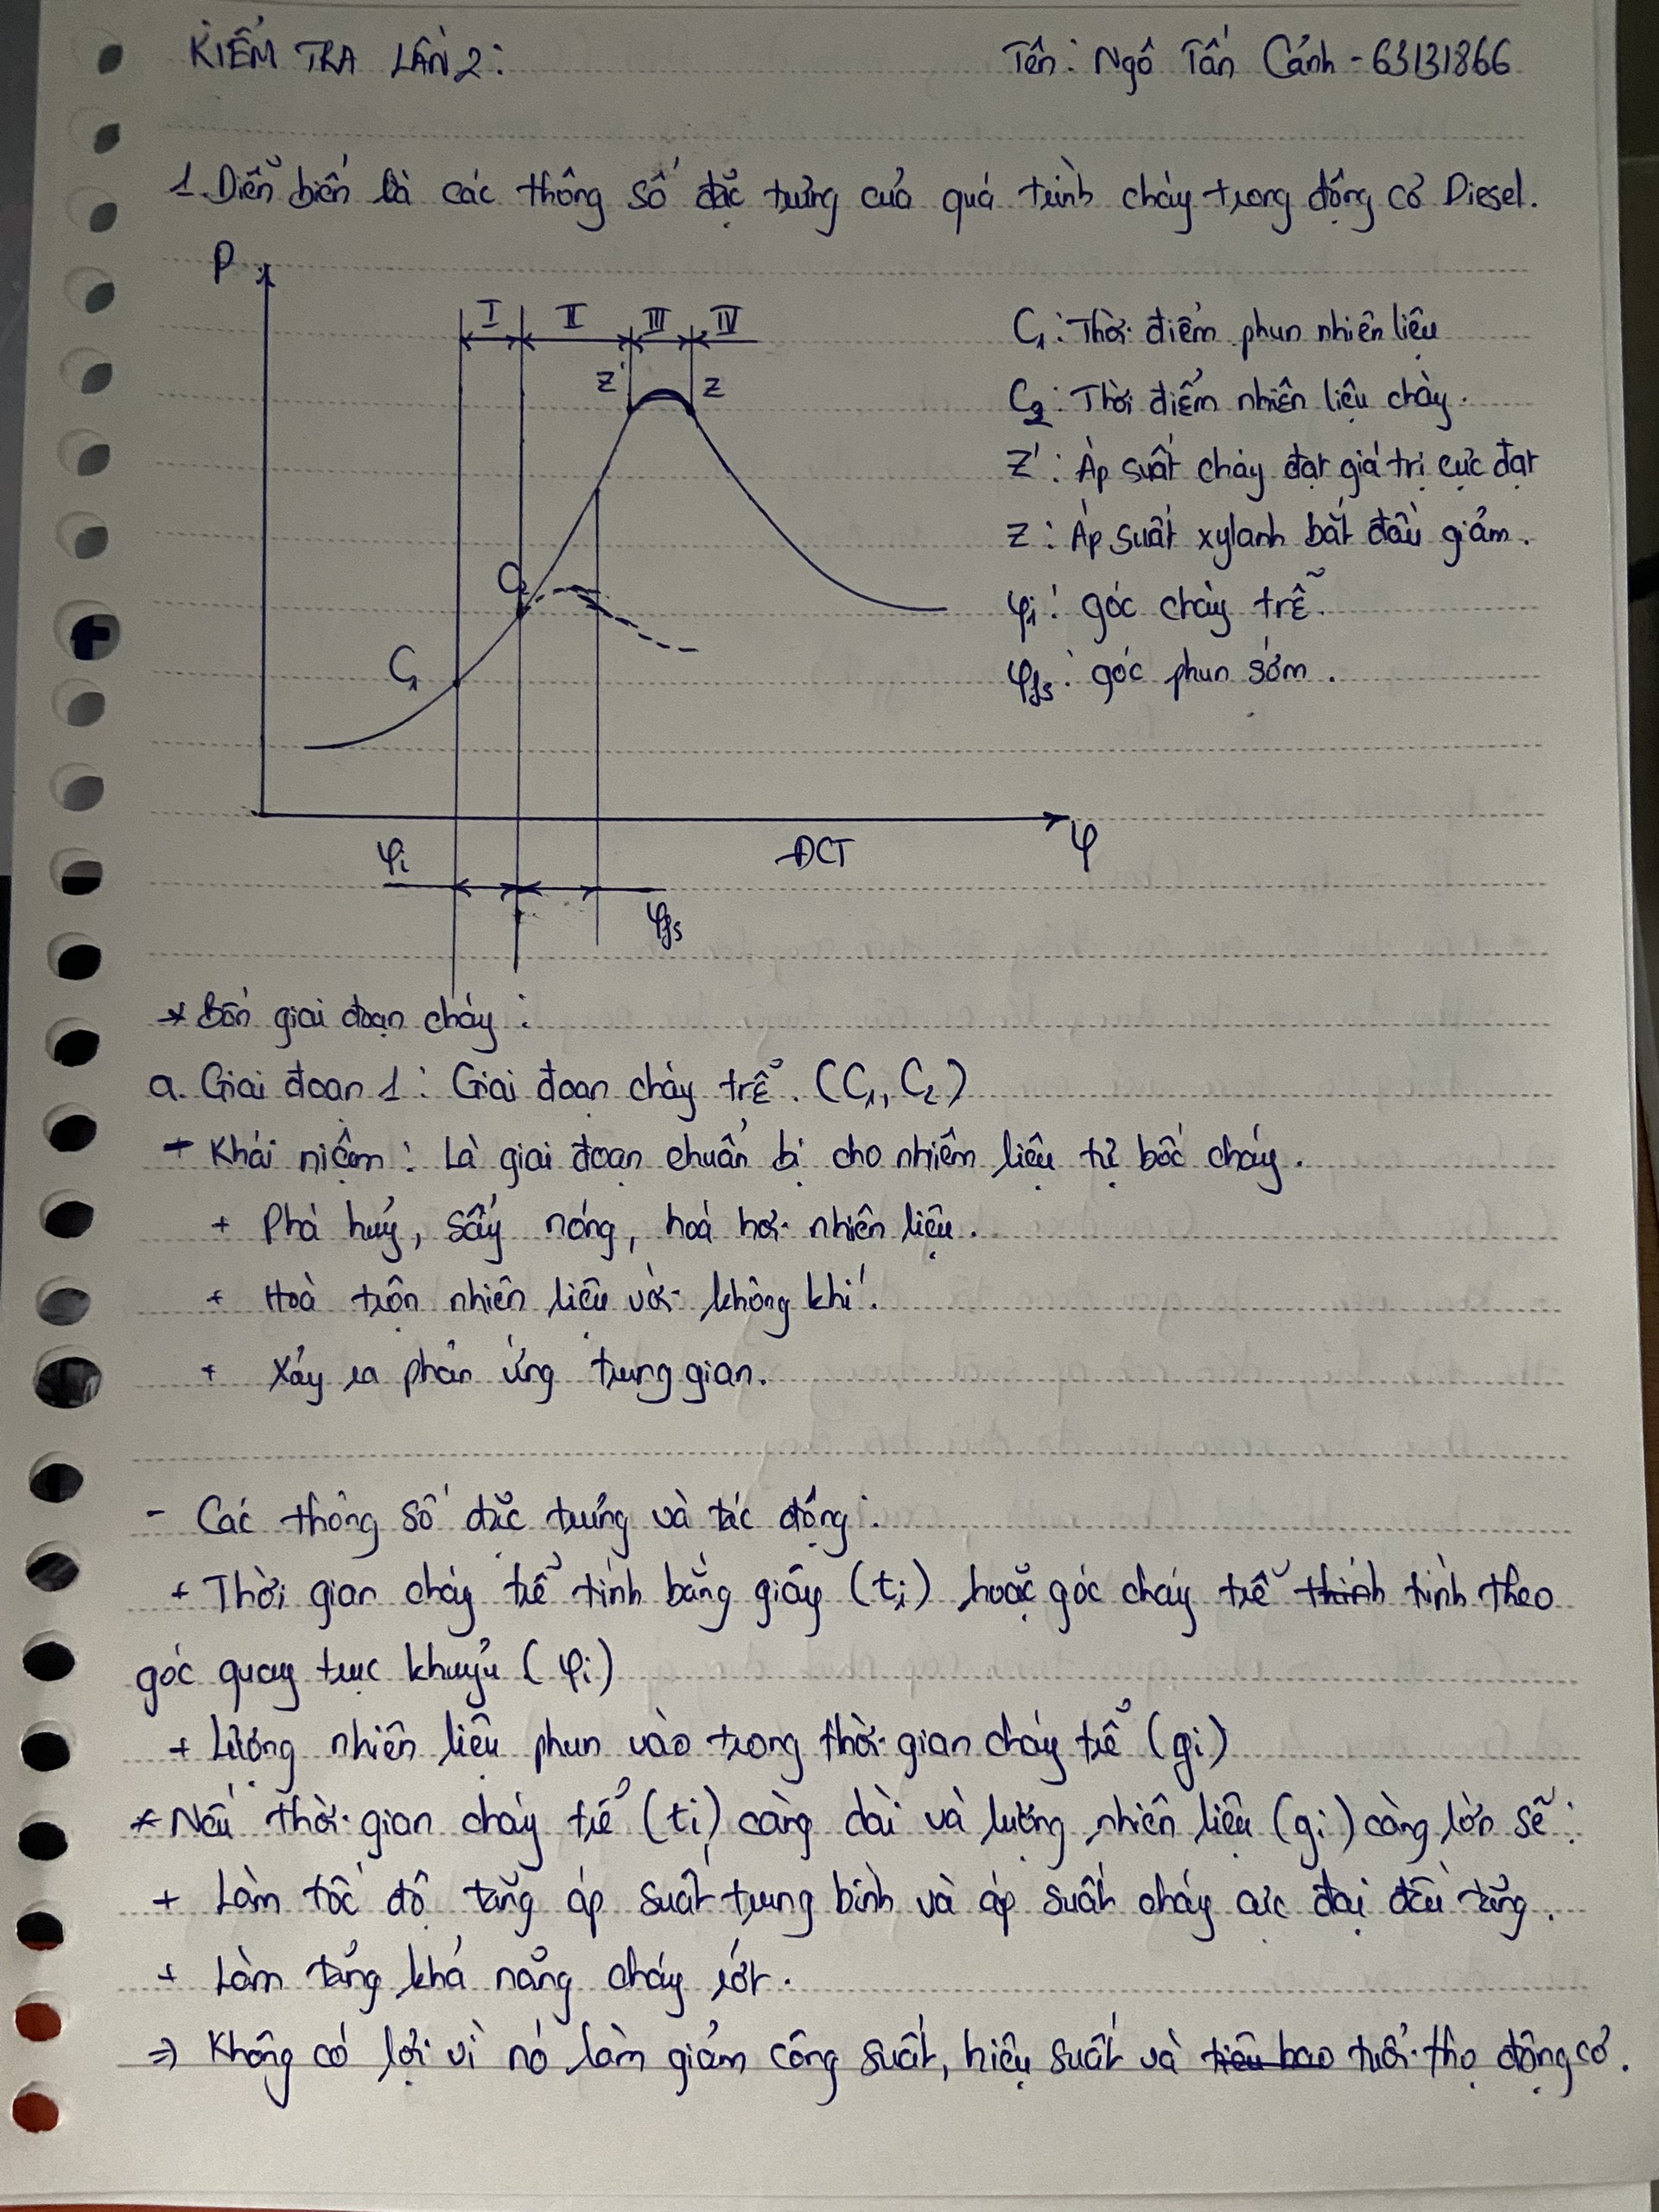 KIỂM TRA LẦN 2:
Tên: Ngô Tấn Cảnh - 63131866
1. Diễn biến là các thông số đặc trưng của quá trình cháy trong động cơ Diesel.
P
I II III IV
Z' Z
C₂
C₁
φ
ĐCT
φi
φfs
C₁: Thời điểm phun nhiên liệu
C₂: Thời điểm nhiên liệu cháy.
Z': Áp suất cháy đạt giá trị cực đạt
Z: Áp suất xylanh bắt đầu giảm.
φi: góc cháy trễ.
φfs: góc phun sớm.
* Bốn giai đoạn cháy:
a. Giai đoạn 1: Giai đoạn cháy trễ. (C₁, C₂)
- Khái niệm: Là giai đoạn chuẩn bị cho nhiêm liệu tự bốc cháy.
+ Phá huỷ, sấy nóng, hoá hơi nhiên liệu.
+ Hoà trộn nhiên liệu với không khí.
+ Xảy ra phản ứng trung gian.
- Các thông số đặc trưng và tác động:
+ Thời gian cháy trễ tính bằng giây (ti) hoặc góc cháy trễ thính tính theo
góc quay trục khuỷu (φi)
+ Lượng nhiên liệu phun vào trong thời gian cháy trễ (gi)
* Nếu thời gian cháy trễ (ti) càng dài và lượng nhiên liệu (gi) càng lớn sẽ:
+ Làm tốc độ tăng áp suất trung bình và áp suất cháy cực đại đều tăng.
+ Làm tăng khả năng cháy rớt.
⇒ Không có lợi vì nó làm giảm công suất, hiệu suất và tiêu hao tuổi thọ động cơ.